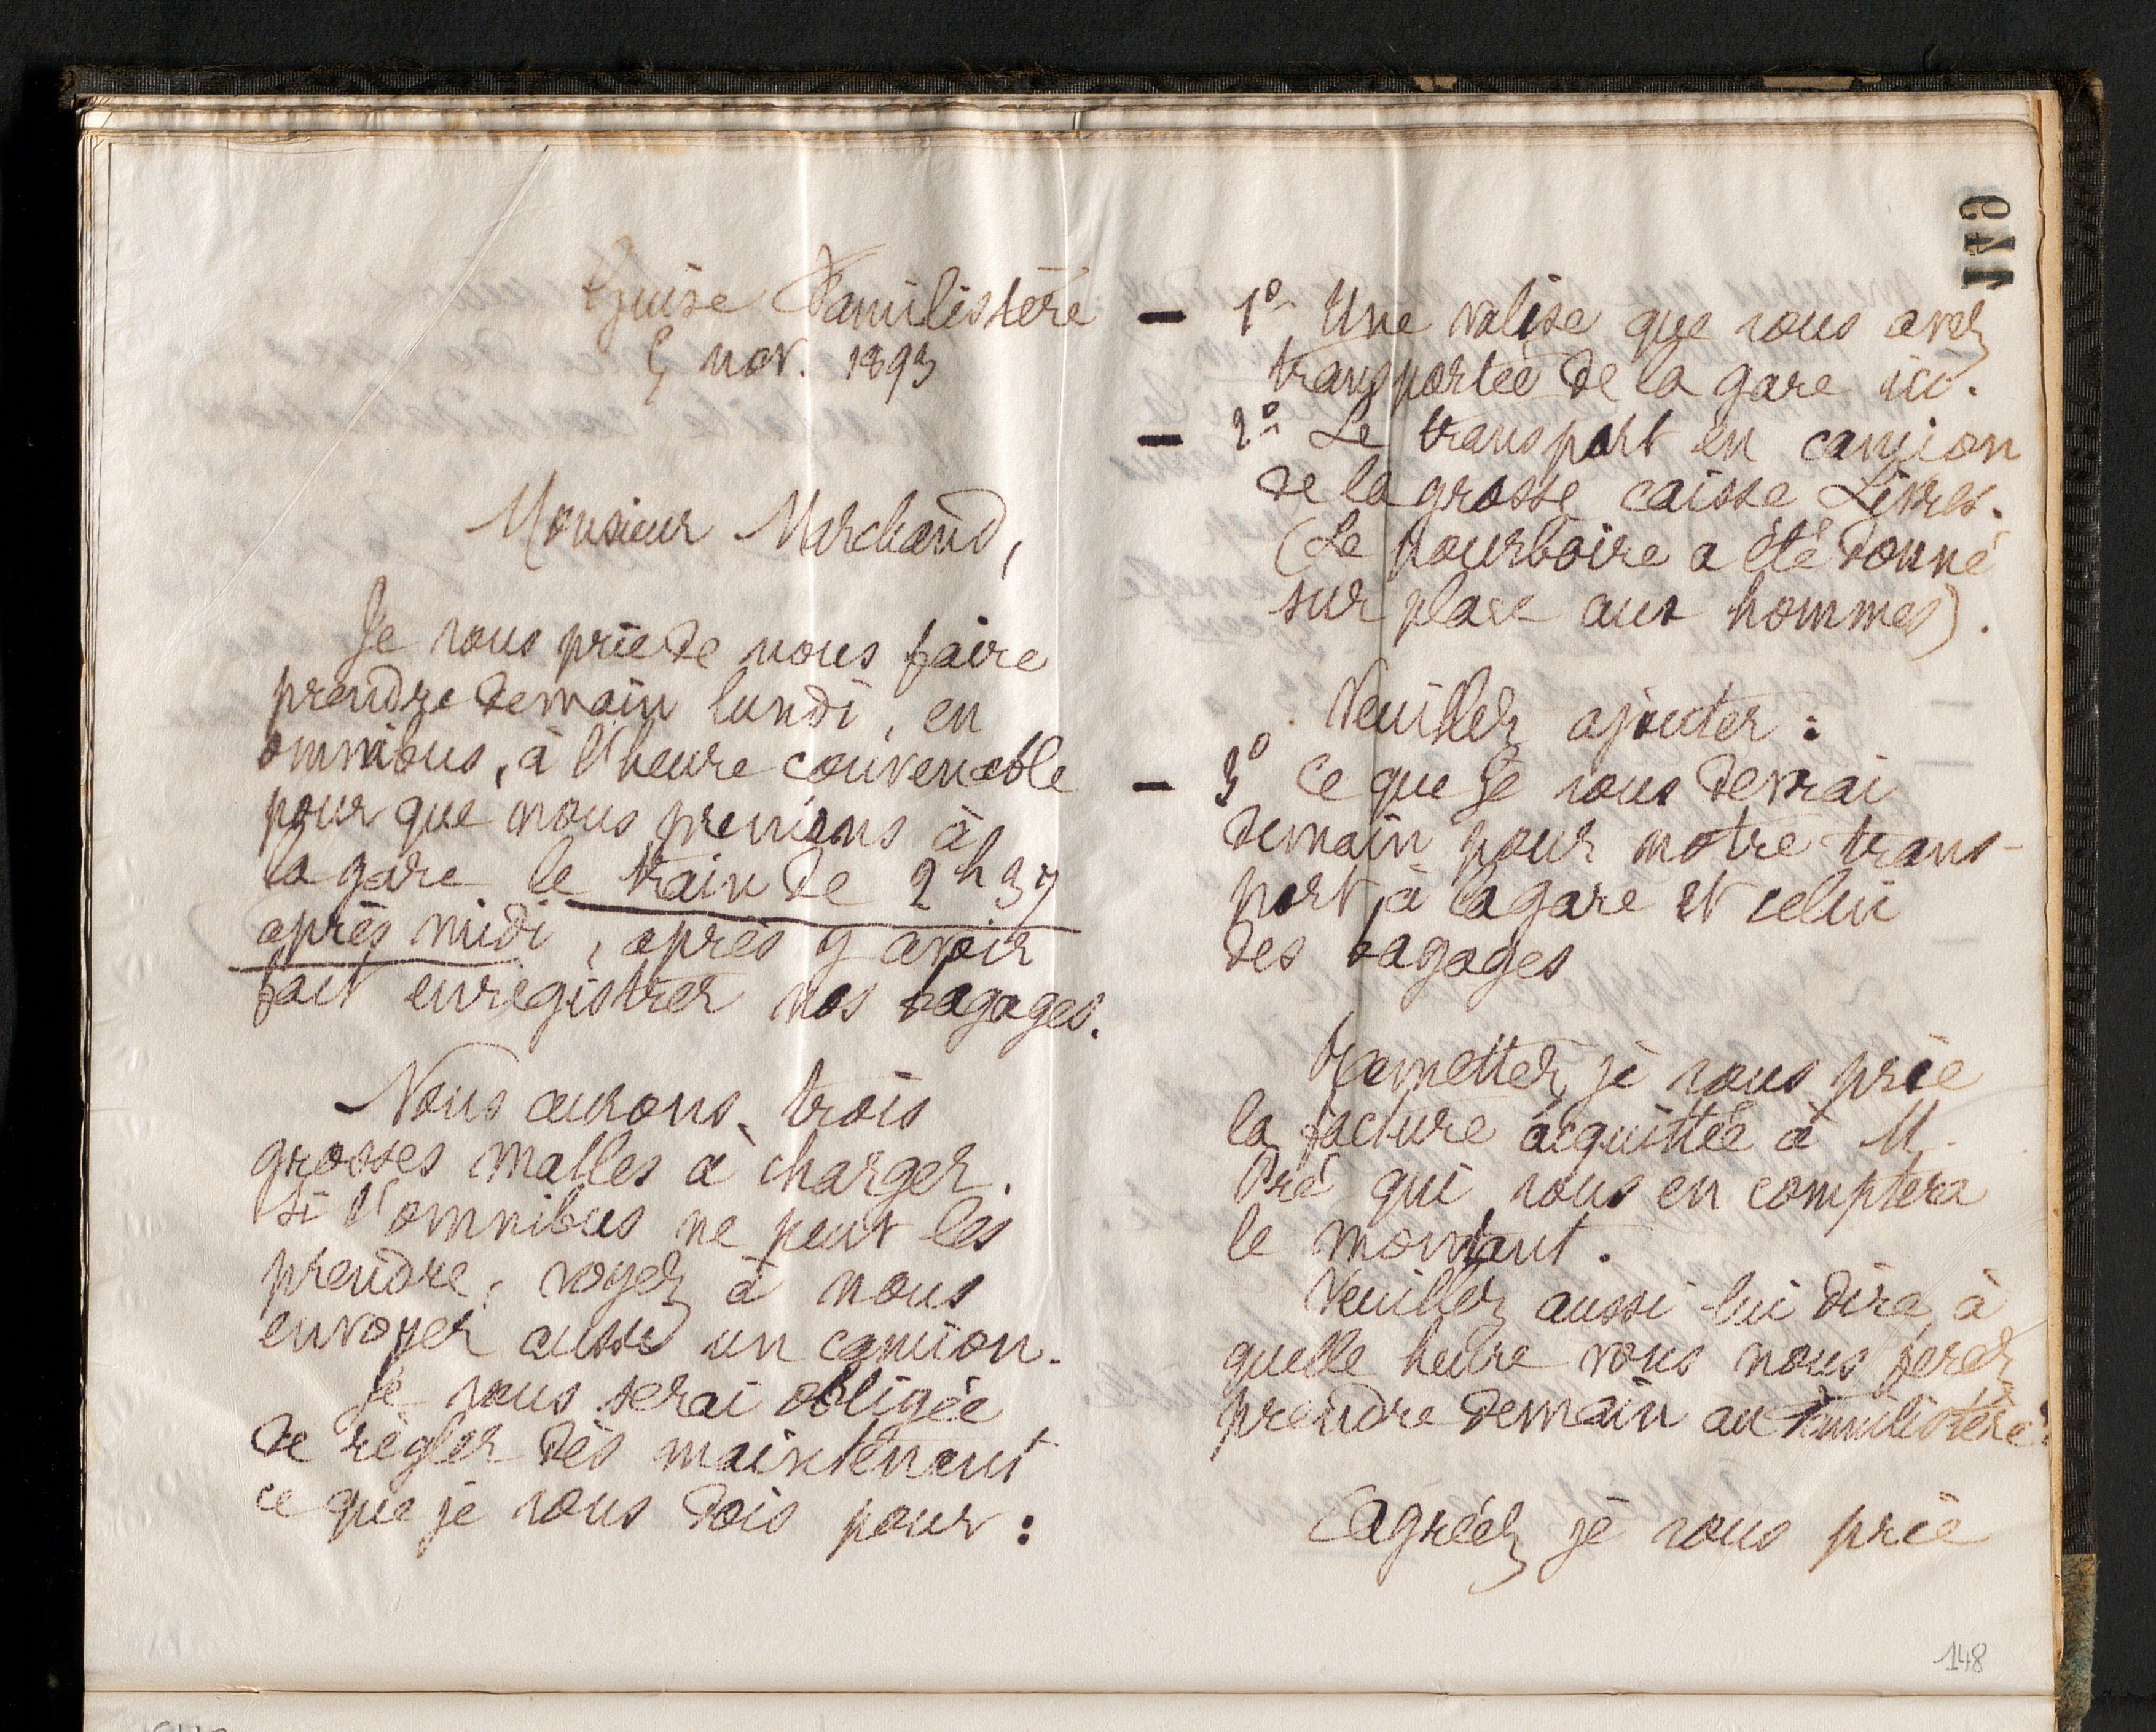 Guise Familistère
5 nov. 1893
Monsieur Marchand,
Je vous prie de nous faire
prendre demain lundi, en
omnibus, à l'heure convenable
pour que nous prenions à
la gare le train de 2h37
après midi, après y avoir
fait enregistrer nos bagages.
Nous aurons trois
grosses malles à charger.
Si l'omnibus ne peut les
prendre, voyez à nous
envoyer aussi un camion.
Je vous serai obligée
de régler dès maintenant
ce que je vous dois pour :
149
— 1° Une valise que vous avez
transportée de la gare ici.
— 2° Le transport en camion
de la grosse caisse Livres.
(Le pourboire a été donné
sur place aux hommes).
Veuillez ajouter :
— 3° Ce que je vous devrai
demain pour notre trans-
port à la gare et celui
des bagages
Remettez, je vous prie
la facture acquittée à M.
Pré qui vous en comptera
le montant.
Veuillez aussi lui dire à
quelle heure vous nous ferez
prendre demain au Familistère.
Agréez je vous prie
148